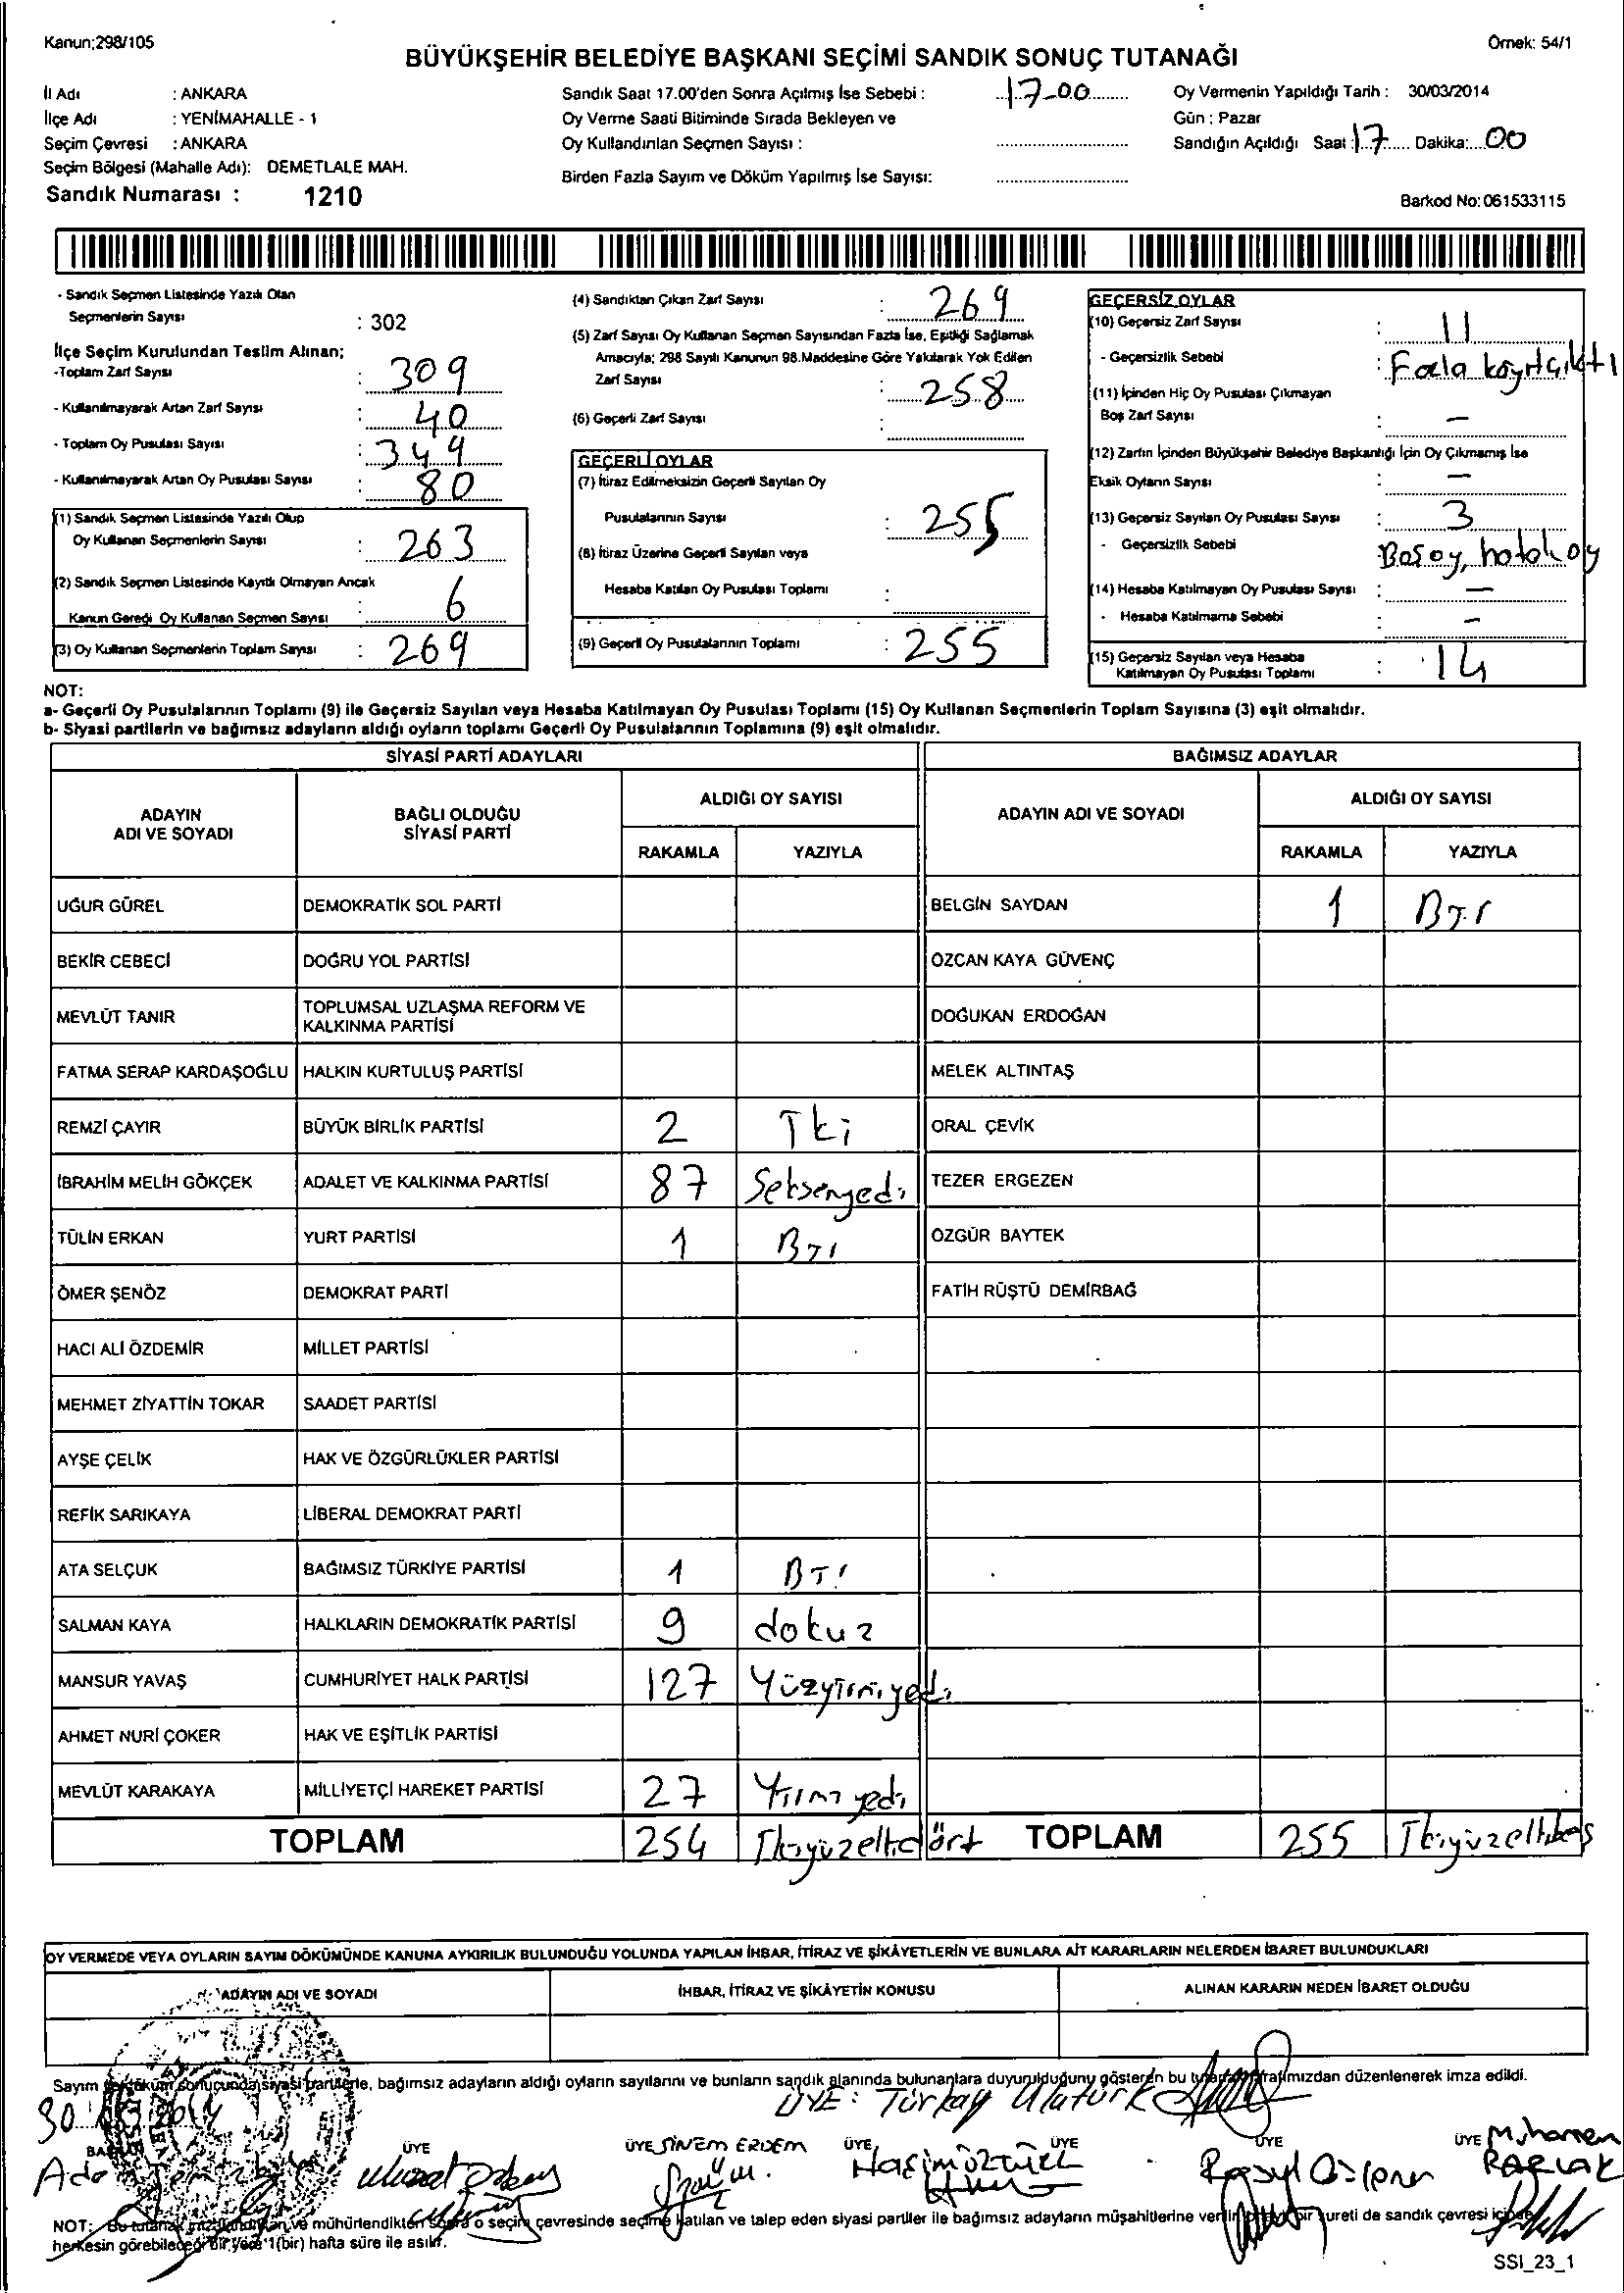 Kanun;298/105
Örnek: 54/1
BÜYÜKŞEHİR BELEDİYE BAŞKANI SEÇİMİ SANDIK SONUÇ TUTANAĞI
İl Adı : ANKARA
İlçe Adı : YENİMAHALLE - 1
Seçim Çevresi : ANKARA
Seçim Bölgesi (Mahalle Adı): DEMETLALE MAH.
Sandık Numarası : 1210
Sandık Saat 17.00'den Sonra Açılmış İse Sebebi : 17-00
Oy Verme Saati Bitiminde Sırada Bekleyen ve
Oy Kullandırılan Seçmen Sayısı :
Birden Fazla Sayım ve Döküm Yapılmış İse Sayısı:
Oy Vermenin Yapıldığı Tarih : 30/03/2014
Gün : Pazar
Sandığın Açıldığı Saat : 17 Dakika: 00
Barkod No: 061533115
- Sandık Seçmen Listesinde Yazılı Olan
Seçmenlerin Sayısı : 302
İlçe Seçim Kurulundan Teslim Alınan;
-Toplam Zarf Sayısı : 309
- Kullanılmayarak Artan Zarf Sayısı : 40
- Toplam Oy Pusulası Sayısı : 349
- Kullanılmayarak Artan Oy Pusulası Sayısı : 80
(1) Sandık Seçmen Listesinde Yazılı Olup
Oy Kullanan Seçmenlerin Sayısı : 263
(2) Sandık Seçmen Listesinde Kayıtlı Olmayan Ancak
Kanun Gereği Oy Kullanan Seçmen Sayısı : 6
(3) Oy Kullanan Seçmenlerin Toplam Sayısı : 269
(4) Sandıktan Çıkan Zarf Sayısı : 269
(5) Zarf Sayısı Oy Kullanan Seçmen Sayısından Fazla İse, Eşitliği Sağlamak
Amacıyla; 298 Sayılı Kanunun 98.Maddesine Göre Yakılarak Yok Edilen
Zarf Sayısı : 258
(6) Geçerli Zarf Sayısı :
GEÇERLİ OYLAR
(7) İtiraz Edilmeksizin Geçerli Sayılan Oy
Pusulalarının Sayısı : 255
(8) İtiraz Üzerine Geçerli Sayılan veya
Hesaba Katılan Oy Pusulası Toplamı :
(9) Geçerli Oy Pusulalarının Toplamı : 255
GEÇERSİZ OYLAR
(10) Geçersiz Zarf Sayısı : 11
- Geçersizlik Sebebi : Fazla kayıt çıktı
(11) İçinden Hiç Oy Pusulası Çıkmayan
Boş Zarf Sayısı : —
(12) Zarfın İçinden Büyükşehir Belediye Başkanlığı İçin Oy Çıkmamış İse
Eksik Oyların Sayısı : —
(13) Geçersiz Sayılan Oy Pusulası Sayısı : 3
- Geçersizlik Sebebi : Boşoy, hatalı oy
(14) Hesaba Katılmayan Oy Pusulası Sayısı : —
- Hesaba Katılmama Sebebi : —
(15) Geçersiz Sayılan veya Hesaba
Katılmayan Oy Pusulası Toplamı : 14
NOT:
a- Geçerli Oy Pusulalarının Toplamı (9) ile Geçersiz Sayılan veya Hesaba Katılmayan Oy Pusulası Toplamı (15) Oy Kullanan Seçmenlerin Toplam Sayısına (3) eşit olmalıdır.
b- Siyasi partilerin ve bağımsız adayların aldığı oyların toplamı Geçerli Oy Pusulalarının Toplamına (9) eşit olmalıdır.
SİYASİ PARTİ ADAYLARI BAĞIMSIZ ADAYLAR
ADAYIN ADI VE SOYADI BAĞLI OLDUĞU SİYASİ PARTİ ALDIĞI OY SAYISI ADAYIN ADI VE SOYADI ALDIĞI OY SAYISI
RAKAMLA YAZIYLA RAKAMLA YAZIYLA
UĞUR GÜREL DEMOKRATİK SOL PARTİ BELGİN SAYDAN 1 Bir
BEKİR CEBECİ DOĞRU YOL PARTİSİ ÖZCAN KAYA GÜVENÇ
MEVLÜT TANIR TOPLUMSAL UZLAŞMA REFORM VE KALKINMA PARTİSİ DOĞUKAN ERDOĞAN
FATMA SERAP KARDAŞOĞLU HALKIN KURTULUŞ PARTİSİ MELEK ALTINTAŞ
REMZİ ÇAYIR BÜYÜK BİRLİK PARTİSİ 2 İki ORAL ÇEVİK
İBRAHİM MELİH GÖKÇEK ADALET VE KALKINMA PARTİSİ 87 Seksenyedi TEZER ERGEZEN
TÜLİN ERKAN YURT PARTİSİ 1 Bir ÖZGÜR BAYTEK
ÖMER ŞENÖZ DEMOKRAT PARTİ FATİH RÜŞTÜ DEMİRBAĞ
HACI ALİ ÖZDEMİR MİLLET PARTİSİ
MEHMET ZİYATTİN TOKAR SAADET PARTİSİ
AYŞE ÇELİK HAK VE ÖZGÜRLÜKLER PARTİSİ
REFİK SARIKAYA LİBERAL DEMOKRAT PARTİ
ATA SELÇUK BAĞIMSIZ TÜRKİYE PARTİSİ 1 Bir
SALMAN KAYA HALKLARIN DEMOKRATİK PARTİSİ 9 dokuz
MANSUR YAVAŞ CUMHURİYET HALK PARTİSİ 127 Yüzyirmiyedi
AHMET NURİ ÇOKER HAK VE EŞİTLİK PARTİSİ
MEVLÜT KARAKAYA MİLLİYETÇİ HAREKET PARTİSİ 27 Yirmiyedi
TOPLAM 254 İkiyüzellidört TOPLAM 255 İkiyüzellibeş
OY VERMEDE VEYA OYLARIN SAYIM DÖKÜMÜNDE KANUNA AYKIRILIK BULUNDUĞU YOLUNDA YAPILAN İHBAR, İTİRAZ VE ŞİKÂYETLERİN VE BUNLARA AİT KARARLARIN NELERDEN İBARET BULUNDUKLARI
ADAYIN ADI VE SOYADI İHBAR, İTİRAZ VE ŞİKÂYETİN KONUSU ALINAN KARARIN NEDEN İBARET OLDUĞU
Sayım ve döküm sonucunda siyasi partilerle, bağımsız adayların aldığı oyların sayılarını ve bunların sandık alanında bulunanlara duyurulduğunu gösteren bu tutanak tarafımızdan düzenlenerek imza edildi.
ÜYE : Türkay Ulutürk
30 03 2014
BAŞKAN ÜYE ÜYE SİNEM ERDEM ÜYE ÜYE ÜYE ÜYE Muharrem
Haşim Öztürk
PARLAK
NOT: Bu tutanak imzalandıktan ve mühürlendikten sonra o seçim çevresinde seçime katılan ve talep eden siyasi partiler ile bağımsız adayların müşahitlerine verilir, onaylı bir sureti de sandık çevresi içinde
herkesin görebileceği bir yere 1(bir) hafta süre ile asılır.
SSI_23_1